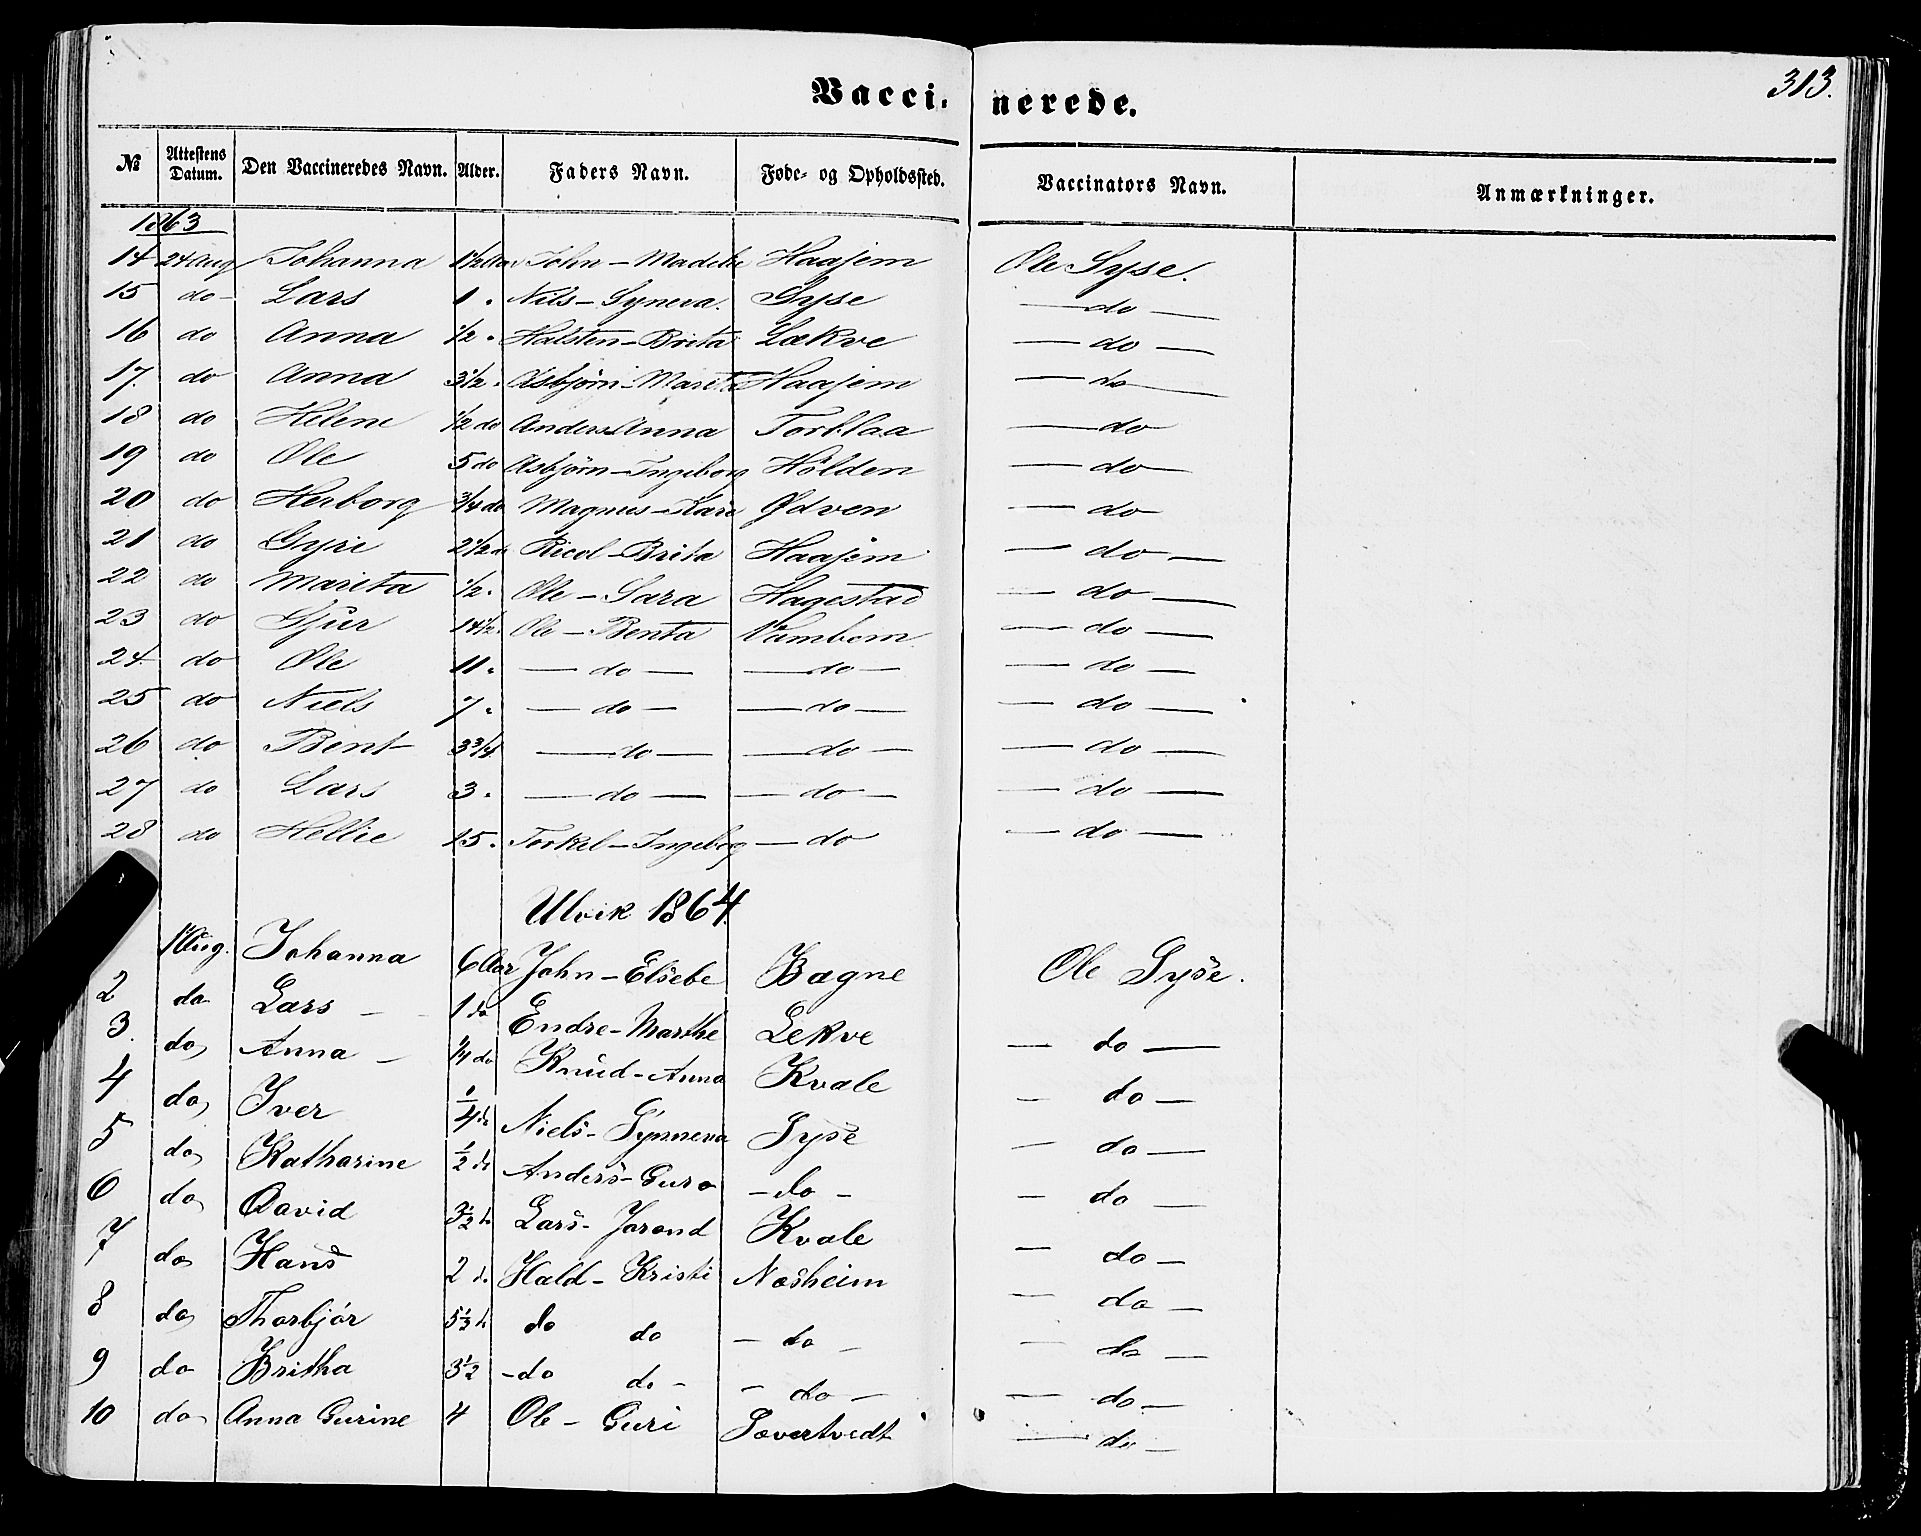 313.
Vaccinerede.
№ Attestens Datum. Den Vaccineredes Navn. Alder. Faders Navn. Føde- og Opholdssted. Vaccinators Navn. Anmærkninger.
1863
14 24 Aug Johanna 1½ Aar John - Haajem Ole Syse.
15 do - Lars 1 . Nils - Syneva. Syse - do -
16 do Anna ½ . Halsten - Brita Lækve - do -
17. do Anna 3½ . Asbjörn - Marita Haajem - do -
18 do Helene ½ do Anders Anna Torblaa - do
19 do Ole 5 do Asbjörn - Ingeborg Hölden - do -
20 do Herborg ¾ do Magnus - Kari Ødven - do
21 do Gyri 2½ Ricol - Brita Haajem - do -
22 do Marita ½ . Ole - Sara Hagestad - do -
23 do Sjur 14½ . Ole - Benta Vambem - do -
24 do Ole 11 . - do - - do - - do -
25 do Niels 7 . - do - - do - - do -
26 do Bent 3¾ - do - - do - - do -
27 do Lars 3 . - do - - do - - do -
28 do Hellie 15 . Torkel - Ingeborg - do - do -
Ulvik 1864.
1 Aug. Johanna 6 Aar John - Elsebe Bagne Ole Syse.
2 do Lars - 1 do Endre - Marthe Lekve - do -
3. do Anna - ¼ do Knud - Anna Kvale - do -
4 do Iver ¼ do Niels - Synneva Syse - do -
5 do Katharine ½ do Anders - Guro - do - - do -
6 do David 3½ d. Lars - Jorand Kvale - do -
7 do Hans 2 d. Hald - Kristi Næsheim - do -
8 do Thorbjör 5½ d. do do - do - - do -
9 do Britha 3½ - do do - - do - - do -
10 do Anna Gurine 4 Ole - Guri Sævertvedt - do -